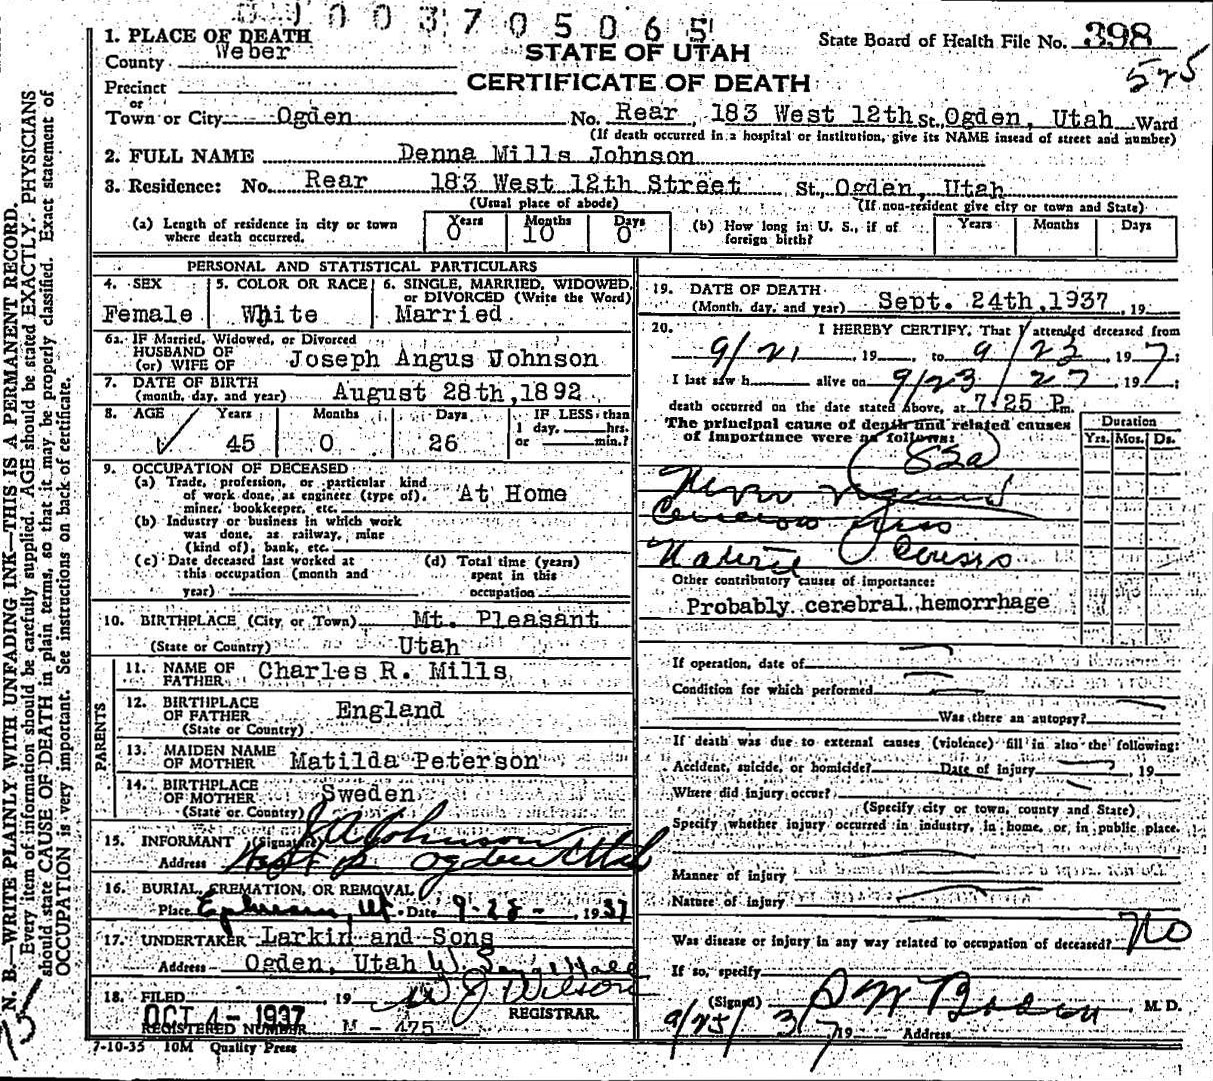 0 1 0 0 3 7 0 5 0 6 5
1. PLACE OF DEATH
County Weber
STATE OF UTAH
CERTIFICATE OF DEATH
State Board of Health File No. 398
525
Precinct
or
Town or City Ogden No. Rear 183 West 12th St. Ogden, Utah Ward
(If death occurred in a hospital or institution, give its NAME insead of street and number)
2. FULL NAME Denna Mills Johnson
3. Residence: No. Rear 183 West 12th Street St., Ogden, Utah
(Usual place of abode) (If non-resident give city or town and State)
(a) Length of residence in city or town where death occurred. Years 0 Months 10 Days 0
(b) How long in U. S., if of foreign birth? Years Months Days
PERSONAL AND STATISTICAL PARTICULARS
4. SEX Female
5. COLOR OR RACE White
6. SINGLE, MARRIED, WIDOWED, or DIVORCED (Write the Word) Married
6a. IF Married, Widowed, or Divorced
HUSBAND OF
(or) WIFE OF Joseph Angus Johnson
7. DATE OF BIRTH
(month, day, and year) August 28th, 1892
8. AGE Years 45 Months 0 Days 26 IF LESS than
1 day, hrs.
or min.?
9. OCCUPATION OF DECEASED
(a) Trade, profession, or particular kind
of work done, as engineer (type of),
miner, bookkeeper, etc. At Home
(b) Industry or business in which work
was done, as railway, mine
(kind of), bank, etc.
(c) Date deceased last worked at
this occupation (month and
year)
(d) Total time (years)
spent in this
occupation
10. BIRTHPLACE (City or Town) Mt. Pleasant
(State or Country) Utah
PARENTS
11. NAME OF
FATHER Charles R. Mills
12. BIRTHPLACE
OF FATHER England
(State or Country)
13. MAIDEN NAME
OF MOTHER Matilda Peterson
14. BIRTHPLACE
OF MOTHER Sweden
(State or Country)
15. INFORMANT (Signature) J A Johnson
Address Ogden Utah
16. BURIAL, CREMATION, OR REMOVAL
Place Ephraim, Ut. Date 9-28-, 1937
17. UNDERTAKER Larkin and Sons
Address Ogden, Utah
18. FILED , 19 W J Wilson
OCT 4 - 1937 REGISTRAR.
REGISTERED NUMBER M - 475
7-10-35 10M Quality Press
19. DATE OF DEATH
(Month, day, and year) Sept. 24th, 1937, 19
20. I HEREBY CERTIFY, That I attended deceased from
9/21, 19 to 9/23, 1937;
I last saw h alive on 9/23/ 27, 1937;
death occurred on the date stated above, at 7:25 P m.
The principal cause of death and related causes
of importance were as follows:
Duration
Yrs. Mos. Ds.
82a
Other contributory causes of importance:
Probably cerebral hemorrhage
If operation, date of
Condition for which performed
Was there an autopsy?
If death was due to external causes (violence) fill in also the following:
Accident, suicide, or homicide? Date of injury , 19
Where did injury occur?
(Specify city or town, county and State)
Specify whether injury occurred in industry, in home, or in public place.
Manner of injury
Nature of injury
Was disease or injury in any way related to occupation of deceased? No
If so, specify
(Signed) M. D.
9/25/ 37 19 Address
N. B.—WRITE PLAINLY WITH UNFADING INK—THIS IS A PERMANENT RECORD.
Every item of information should be carefully supplied. AGE should be stated EXACTLY. PHYSICIANS
should state CAUSE OF DEATH in plain terms, so that it may be properly classified. Exact statement of
OCCUPATION is very important. See instructions on back of certificate.
75